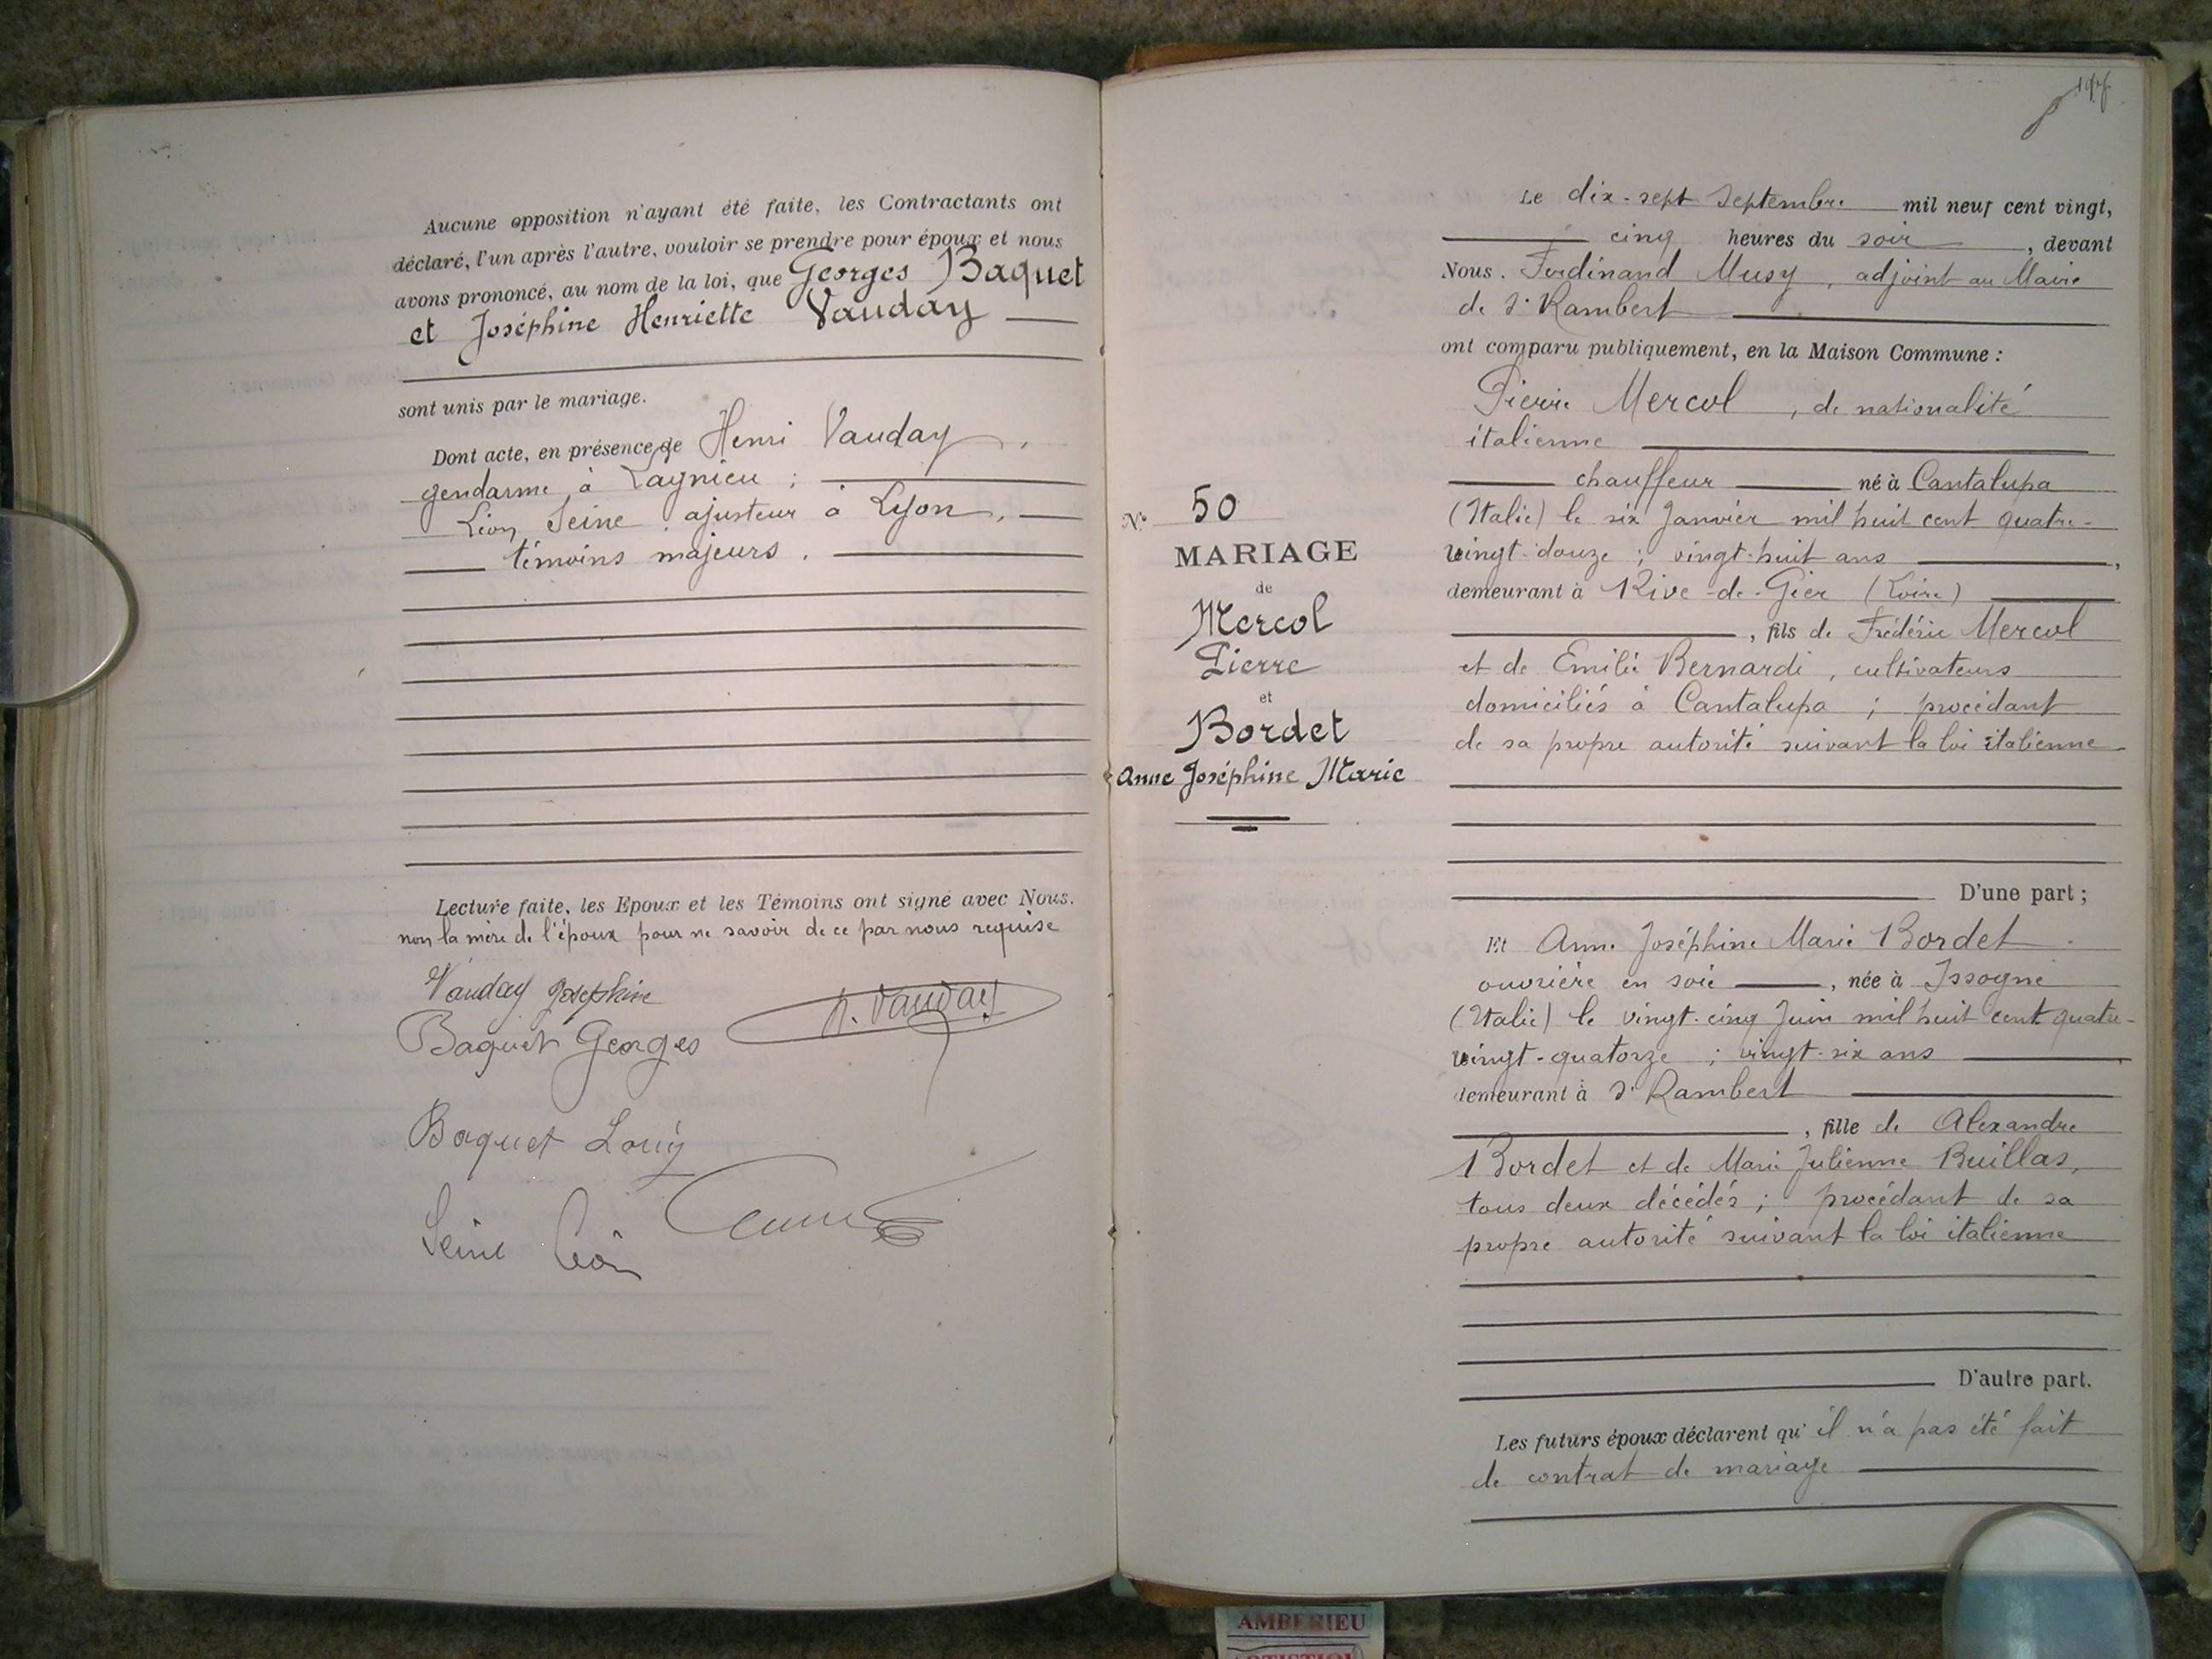 Aucune opposition n'ayant été faite, les Contractants ont
déclaré, l'un après l'autre, vouloir se prendre pour époux et nous
avons prononcé, au nom de la loi, que Georges Baquet
et Joséphine Henriette Vauday
sont unis par le mariage.
Dont acte, en présence de Henri Vauday,
gendarme à Lagnieu ;
Léon Seine, ajusteur à Lyon,
témoins majeurs.
Lecture faite, les Epoux et les Témoins ont signé avec Nous.
non la mère de l'époux pour ne savoir de ce par nous requise
Vauday Joséphine
H. Vauday
Baquet Georges
Baquet Louis
Seine Léon
N° 50
MARIAGE
de
Mercol
Pierre
et
Bordet
Anne Joséphine Marie
Le dix-sept Septembre mil neuf cent vingt,
cinq heures du soir, devant
Nous. Ferdinand Musy, adjoint au Maire
de St Rambert
ont comparu publiquement, en la Maison Commune :
Pierre Mercol, de nationalité
italienne
chauffeur né à Cantalupa
(Italie) le six Janvier mil huit cent quatre-
vingt-douze ; vingt-huit ans,
demeurant à Rive-de-Gier (Loire)
, fils de Frédéric Mercol
et de Emilie Bernardi, cultivateurs
domiciliés à Cantalupa ; procédant
de sa propre autorité suivant la loi italienne
D'une part ;
Et Anne Joséphine Marie Bordet
ouvrière en soie, née à Issogne
(Italie) le vingt-cinq Juin mil huit cent quatre-
vingt-quatorze ; vingt-six ans,
demeurant à St Rambert
, fille de Alexandre
Bordet et de Marie Julienne Buillas,
tous deux décédés ; procédant de sa
propre autorité suivant la loi italienne
D'autre part.
Les futurs époux déclarent qu'il n'a pas été fait
de contrat de mariage
AMBERIEU